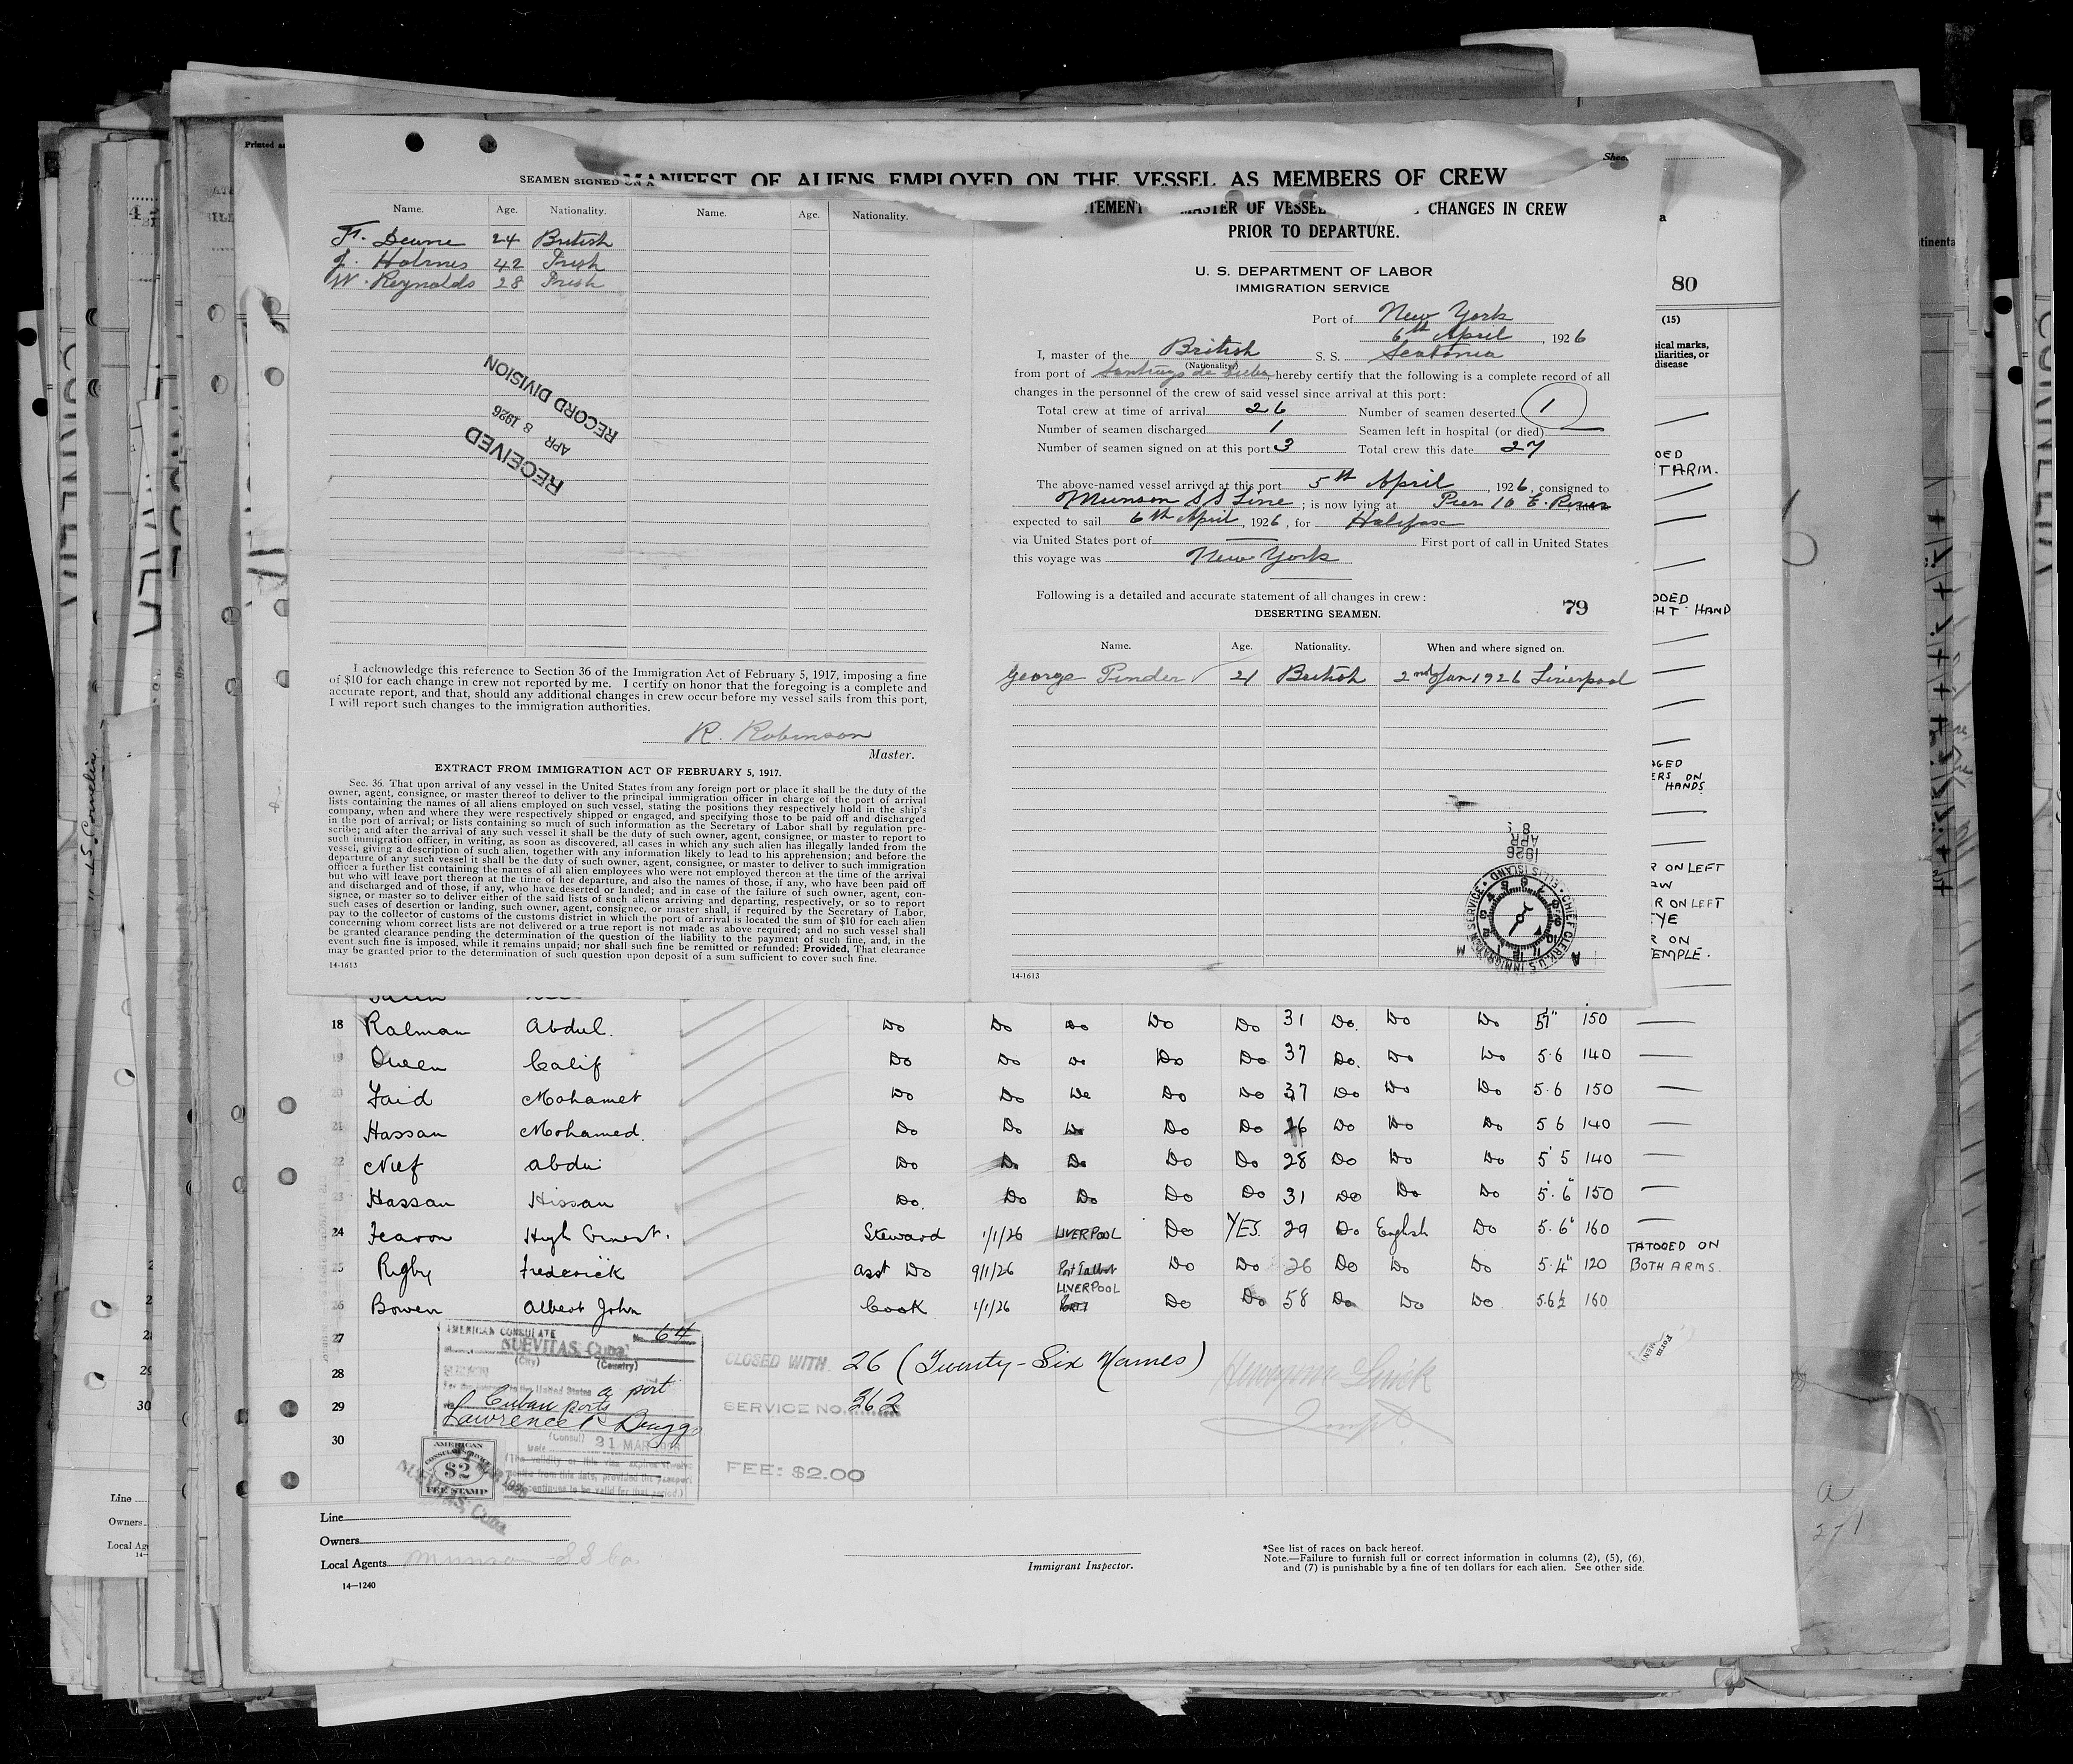 Printed
MANIFEST OF ALIENS EMPLOYED ON THE VESSEL AS MEMBERS OF CREW
SEAMEN SIGNED ON
Name. Age. Nationality. Name. Age. Nationality.
F. Deane 24 British
J. Holmes 42 Irish
W. Reynolds 28 Irish
RECEIVED
APR 8 1926
RECORD DIVISION
I acknowledge this reference to Section 36 of the Immigration Act of February 5, 1917, imposing a fine
of $10 for each change in crew not reported by me. I certify on honor that the foregoing is a complete and
accurate report, and that, should any additional changes in crew occur before my vessel sails from this port,
I will report such changes to the immigration authorities.
R. Robinson
Master.
EXTRACT FROM IMMIGRATION ACT OF FEBRUARY 5, 1917.
Sec. 36. That upon arrival of any vessel in the United States from any foreign port or place it shall be the duty of the
owner, agent, consignee, or master thereof to deliver to the principal immigration officer in charge of the port of arrival
lists containing the names of all aliens employed on such vessel, stating the positions they respectively hold in the ship's
company, when and where they were respectively shipped or engaged, and specifying those to be paid off and discharged
in the port of arrival; or lists containing so much of such information as the Secretary of Labor shall by regulation pre-
scribe; and after the arrival of any such vessel it shall be the duty of such owner, agent, consignee, or master to report to
such immigration officer, in writing, as soon as discovered, all cases in which any such alien has illegally landed from the
vessel, giving a description of such alien, together with any information likely to lead to his apprehension; and before the
departure of any such vessel it shall be the duty of such owner, agent, consignee, or master to deliver to such immigration
officer a further list containing the names of all alien employees who were not employed thereon at the time of the arrival
but who will leave port thereon at the time of her departure, and also the names of those, if any, who have been paid off
and discharged and of those, if any, who have deserted or landed; and in case of the failure of such owner, agent, con-
signee, or master so to deliver either of the said lists of such aliens arriving and departing, respectively, or so to report
such cases of desertion or landing, such owner, agent, consignee, or master shall, if required by the Secretary of Labor,
pay to the collector of customs of the customs district in which the port of arrival is located the sum of $10 for each alien
concerning whom correct lists are not delivered or a true report is not made as above required; and no such vessel shall
be granted clearance pending the determination of the question of the liability to the payment of such fine, and, in the
event such fine is imposed, while it remains unpaid; nor shall such fine be remitted or refunded: Provided, That clearance
may be granted prior to the determination of such question upon deposit of a sum sufficient to cover such fine.
14-1613
MASTER OF VESSEL CHANGES IN CREW
PRIOR TO DEPARTURE.
U. S. DEPARTMENT OF LABOR
IMMIGRATION SERVICE
Port of New York
6th April, 1926
I, master of the British S. S. Seatonia
(Nationality)
from port of Santiago de Cuba, hereby certify that the following is a complete record of all
changes in the personnel of the crew of said vessel since arrival at this port:
Total crew at time of arrival 26 Number of seamen deserted 1
Number of seamen discharged 1 Seamen left in hospital (or died) —
Number of seamen signed on at this port 3 Total crew this date 27
The above-named vessel arrived at this port 5th April, 1926, consigned to
Munson SS Line; is now lying at Pier 10 E. River
expected to sail 6th April, 1926, for Halifax
via United States port of — First port of call in United States
this voyage was New York
Following is a detailed and accurate statement of all changes in crew:
DESERTING SEAMEN.
79
Name. Age. Nationality. When and where signed on.
George Pinder 21 British 2nd Jan 1926 Liverpool
1926
APR
8
CHIEF CLERK, U.S. IMMIGRATION SERVICE • ELLIS ISLAND •
14-1613
80
(15)
disease
TARM.
HAND
ON
HANDS
ON LEFT
ON LEFT
ON
18 Ralman Abdul. Do Do Do Do Do 31 Do. Do Do 5'7" 150 —
19 Queen Calif Do Do Do Do Do 37 Do. Do Do 5.6 140 —
20 Said Mohamet Do Do Do Do Do 37 Do Do Do 5.6 150 —
21 Hassan Mohamed. Do Do Do Do Do 26 Do Do Do 5 6 140 —
22 Nuf Abdu Do Do Do Do Do 28 Do Do Do 5'5 140 —
23 Hassan Hissan Do. Do Do Do Do 31 Do Do Do 5'.6" 150 —
24 Fearon Hugh Ernest. Steward 1/1/26 LIVERPOOL Do YES. 29 Do English Do 5.6" 160 —
25 Rigby Frederick Asst Do 9/1/26 Port Talbot Do Do 26 Do Do Do 5.4" 120 TATOOED ON BOTH ARMS.
26 Bowen Albert John Cook 1/1/26 LIVERPOOL Do Do 58 Do Do Do 5.6½ 160
27
28
29
30
AMERICAN CONSULATE No. 64
NUEVITAS, Cuba.
(City) (Country)
a port
Cuban ports
(Consul)
31 MAR
AMERICAN
$2
FEE STAMP
NUEVITAS, Cuba
CLOSED WITH 26 (Twenty-Six Names)
SERVICE NO. 262
FEE: $2.00
Line
Owners
Local Agents Munson SS Co.
14—1240
Immigrant Inspector.
*See list of races on back hereof.
Note.—Failure to furnish full or correct information in columns (2), (5), (6),
and (7) is punishable by a fine of ten dollars for each alien. See other side.
Line
Owners